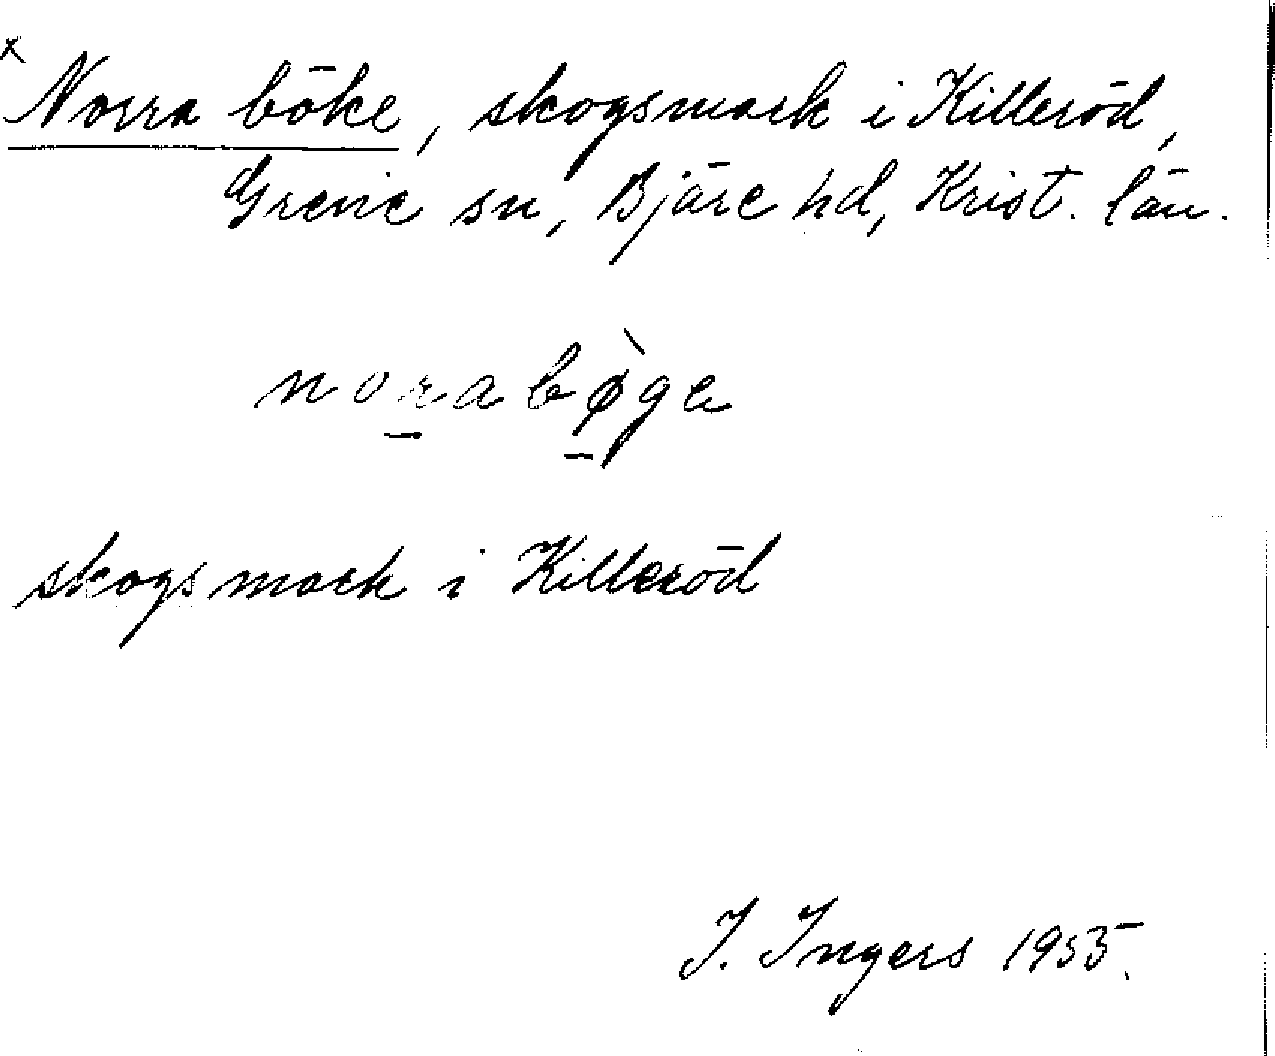 x
Norra böke, skogsmark i Killeröd,
Grevie sn, Bjäre hd, Krist. län.
norabø̀ga
skogsmark i Killeröd
I. Ingers 1955.